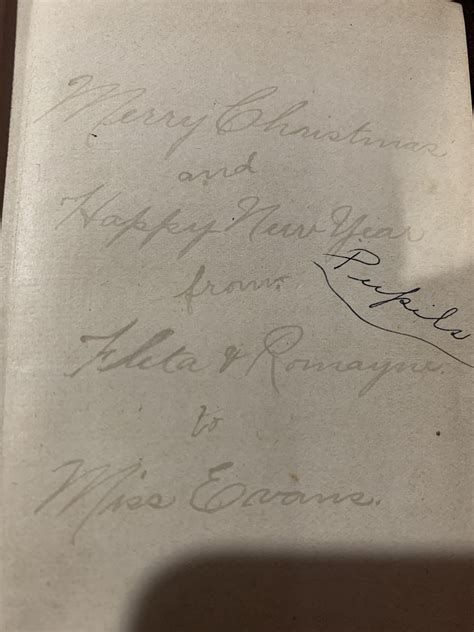 Merry Christmas
and
Happy New Year
Pupils
from
Fleta & Romayne.
to
Miss Evans.